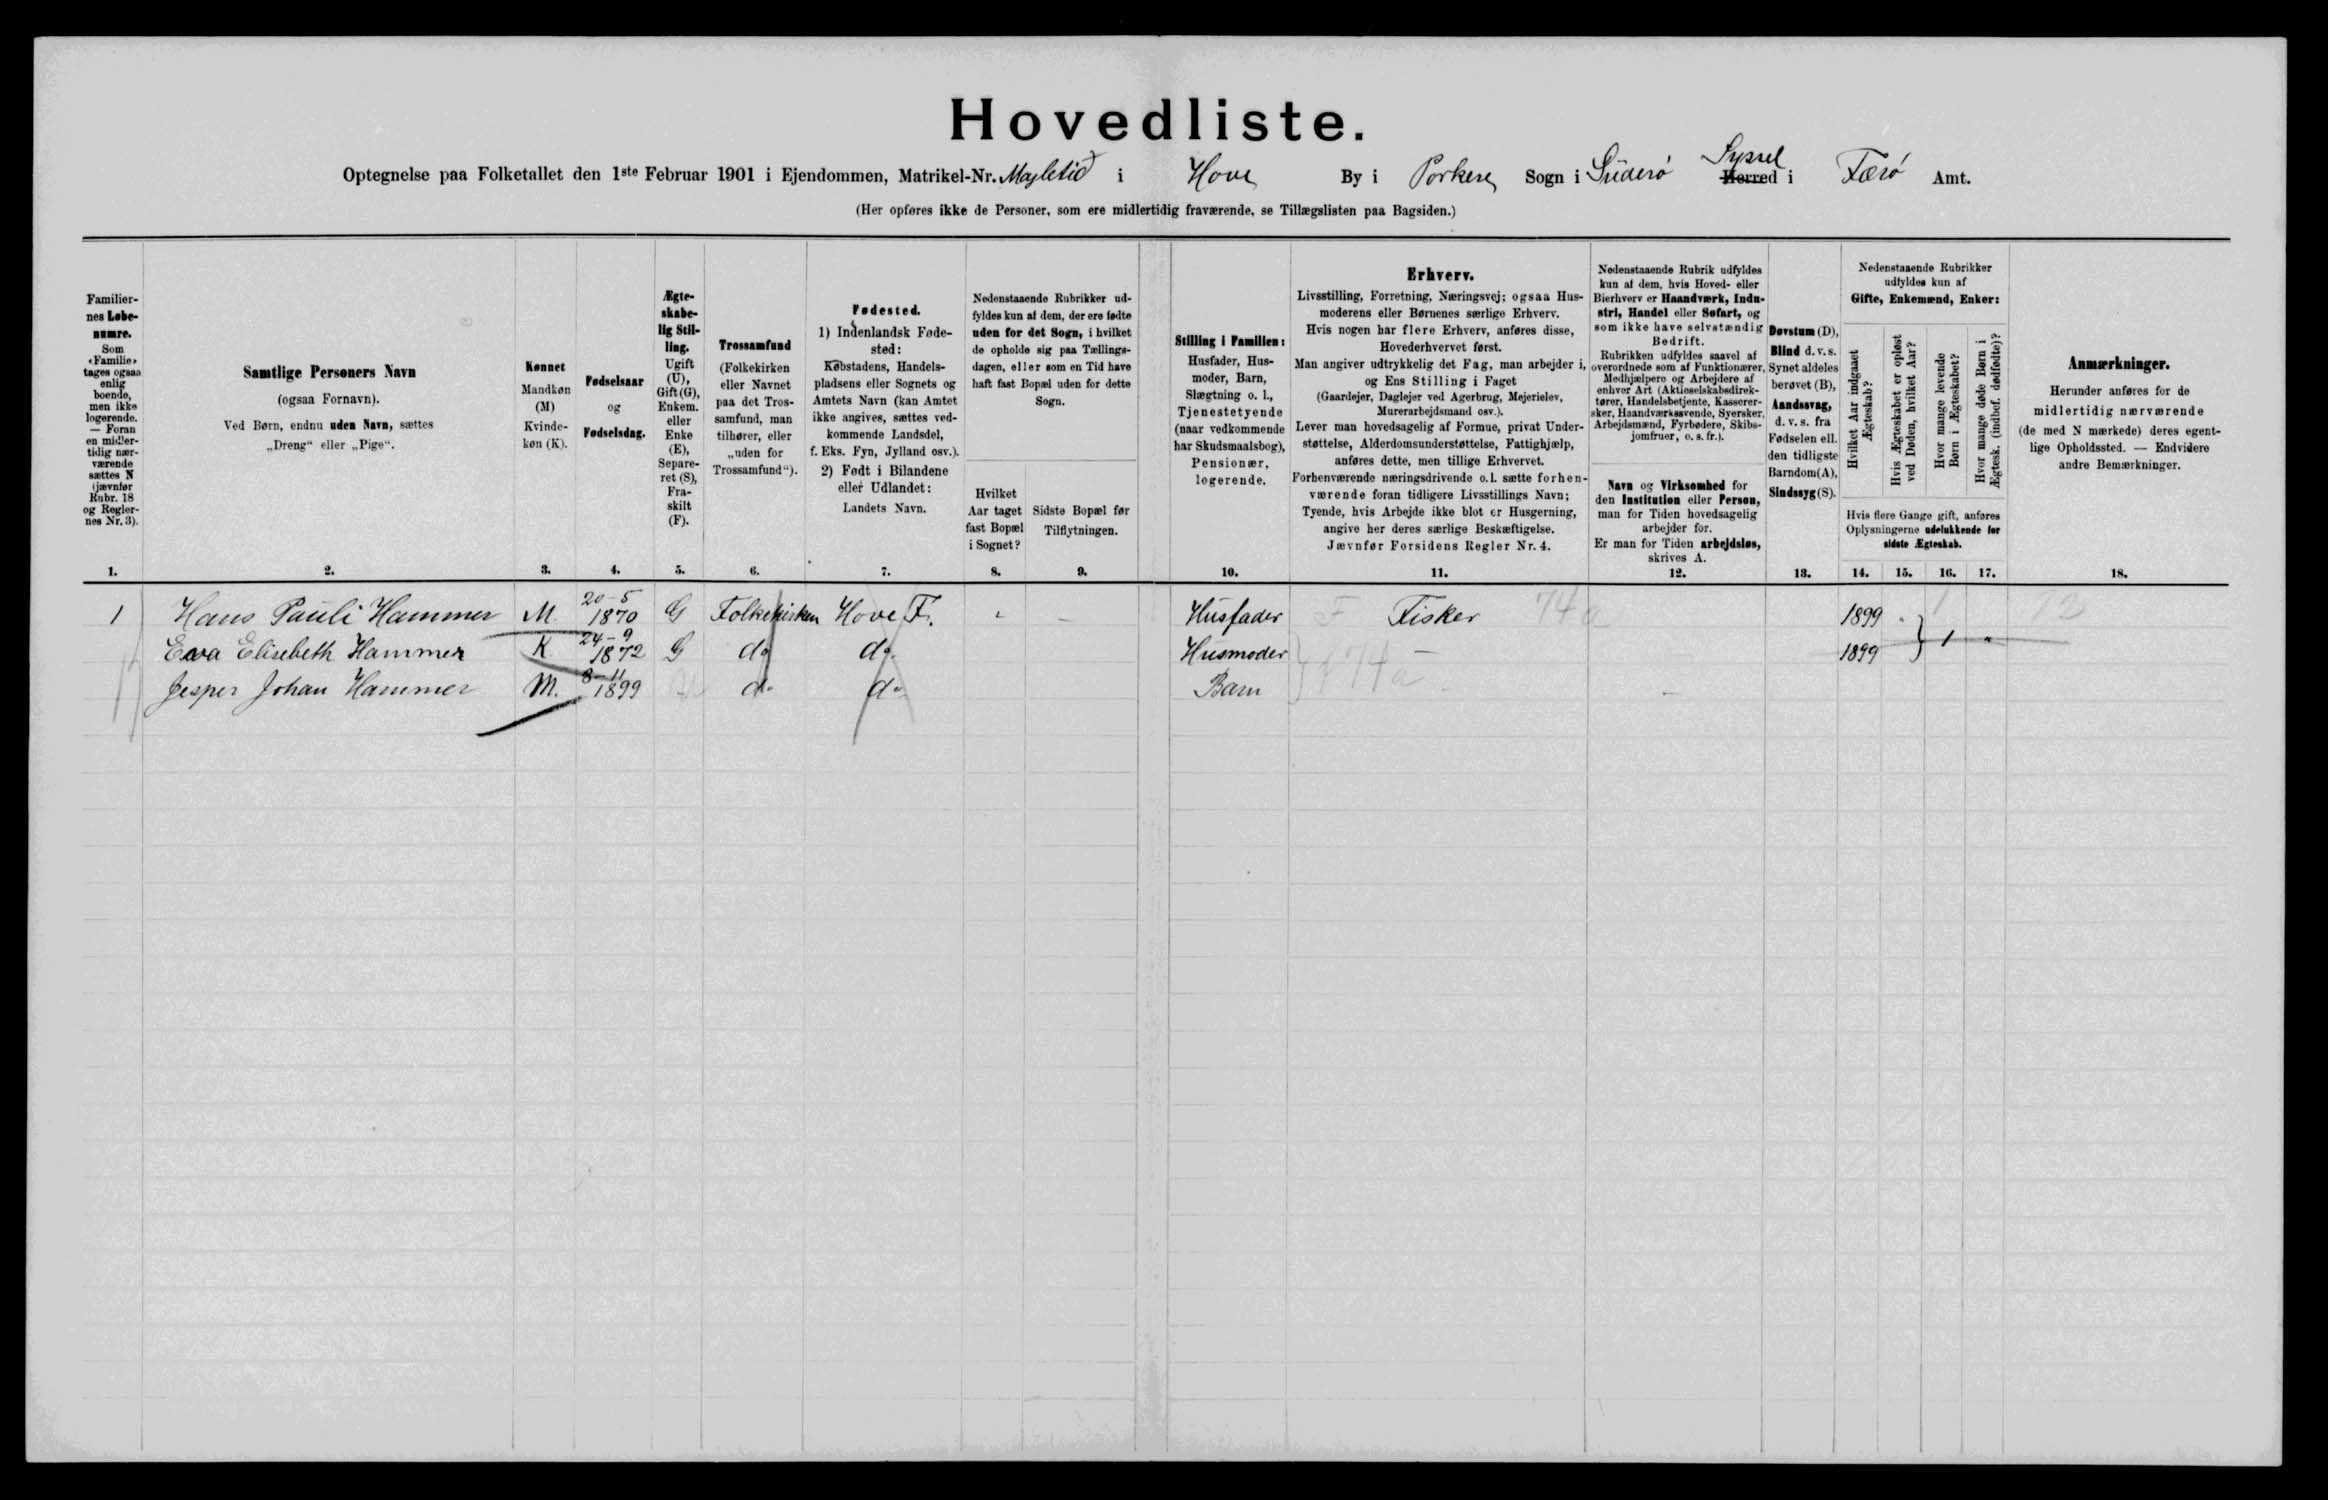 Hovedliste.
Optegnelse paa Folketallet den 1ste Februar 1901 i Ejendommen, Matrikel-Nr. i Hove By i Porkere Sogn i Süderø Syssel Herred i Færø Amt.
(Her opføres ikke de Personer, som ere midlertidig fraværende, se Tillægslisten paa Bagsiden.)
Familier-
nes Løbe-
numre.
Som
«Familie»
tages ogsaa
enlig
boende,
men ikke
logerende.
— Foran
en midler-
tidig nær-
værende
sættes N
(jævnfør
Rubr. 18
og Regler-
nes Nr. 3).
1.
Samtlige Personers Navn
(ogsaa Fornavn).
Ved Børn, endnu uden Navn, sættes
„Dreng“ eller „Pige“.
2.
Kønnet
Mandkøn
(M)
Kvinde-
køn (K).
3.
Fødselsaar
og
Fødselsdag.
4.
Ægte-
skabe-
lig Stil-
ling.
Ugift
(U),
Gift (G),
Enkem.
eller
Enke
(E),
Separe-
ret (S),
Fra-
skilt
(F).
5.
Trossamfund
(Folkekirken
eller Navnet
paa det Tros-
samfund, man
tilhører, eller
„uden for
Trossamfund“).
6.
Fødested.
1) Indenlandsk Føde-
sted:
Købstadens, Handels-
pladsens eller Sognets og
Amtets Navn (kan Amtet
ikke angives, sættes ved-
kommende Landsdel,
f. Eks. Fyn, Jylland osv.).
2) Født i Bilandene
eller Udlandet:
Landets Navn.
7.
Nedenstaaende Rubrikker ud-
fyldes kun af dem, der ere fødte
uden for det Sogn, i hvilket
de opholde sig paa Tællings-
dagen, eller som en Tid have
haft fast Bopæl uden for dette
Sogn.
Hvilket
Aar taget
fast Bopæl
i Sognet?
8.
Sidste Bopæl før
Tilflytningen.
9.
Stilling i Familien:
Husfader, Hus-
moder, Barn,
Slægtning o. l.,
Tjenestetyende
(naar vedkommende
har Skudsmaalsbog),
Pensionær,
logerende.
10.
Erhverv.
Livsstilling, Forretning, Næringsvej; ogsaa Hus-
moderens eller Børnenes særlige Erhverv.
Hvis nogen har flere Erhverv, anføres disse,
Hovederhvervet først.
Man angiver udtrykkelig det Fag, man arbejder i,
og Ens Stilling i Faget
(Gaardejer, Daglejer ved Agerbrug, Mejerielev,
Murerarbejdsmand osv.).
Lever man hovedsagelig af Formue, privat Under-
støttelse, Alderdomsunderstøttelse, Fattighjælp,
anføres dette, men tillige Erhvervet.
Forhenværende næringsdrivende o. l. sætte forhen-
værende foran tidligere Livsstillings Navn;
Tyende, hvis Arbejde ikke blot er Husgerning,
angive her deres særlige Beskæftigelse.
Jævnfør Forsidens Regler Nr. 4.
11.
Nedenstaaende Rubrik udfyldes
kun af dem, hvis Hoved- eller
Bierhverv er Haandværk, Indu-
stri, Handel eller Søfart, og
som ikke have selvstændig
Bedrift.
Rubrikken udfyldes saavel af
overordnede som af Funktionærer,
Medhjælpere og Arbejdere af
enhver Art (Aktieselskabsdirek-
tører, Handelsbetjente, Kasserer-
sker, Haandværkssvende, Syersker,
Arbejdsmænd, Fyrbødere, Skibs-
jomfruer, o. s. fr.).
Navn og Virksomhed for
den Institution eller Person,
man for Tiden hovedsagelig
arbejder for.
Er man for Tiden arbejdsløs,
skrives A.
12.
Døvstum (D),
Blind d. v. s.
Synet aldeles
berøvet (B),
Aandssvag,
d. v. s. fra
Fødselen ell.
den tidligste
Barndom (A),
Sindssyg (S).
13.
Nedenstaaende Rubrikker
udfyldes kun af
Gifte, Enkemænd, Enker:
Hvilket Aar indgaaet
Ægteskab?
Hvis Ægteskabet er opløst
ved Døden, hvilket Aar?
Hvor mange levende
Børn i Ægteskabet?
Hvor mange døde Børn i
Ægtesk. (indbef. dødfødte)?
Hvis flere Gange gift, anføres
Oplysningerne udelukkende for
sidste Ægteskab.
14. 15. 16. 17.
Anmærkninger.
Herunder anføres for de
midlertidig nærværende
(de med N mærkede) deres egent-
lige Opholdssted. — Endvidere
andre Bemærkninger.
18.
1 Hans Pauli Hammer M. 20-5 1870 G Folkekirken Hove F. Husfader F Fisker 74a 1899 1 12
Eva Elisebeth Hammer K 24-9 1872 G do do. Husmoder 74a 1899 1 "
Jesper Johan Hammer M. 8-11 1899 U do do Barn